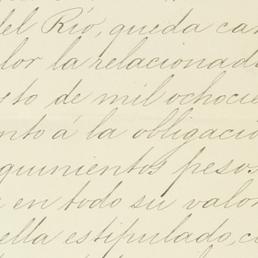 del Río, queda can
lor la relacionada
sto de mil ochocie
nto á la obligació
quinientos pesos
en todo su valor
ella estipulado, c